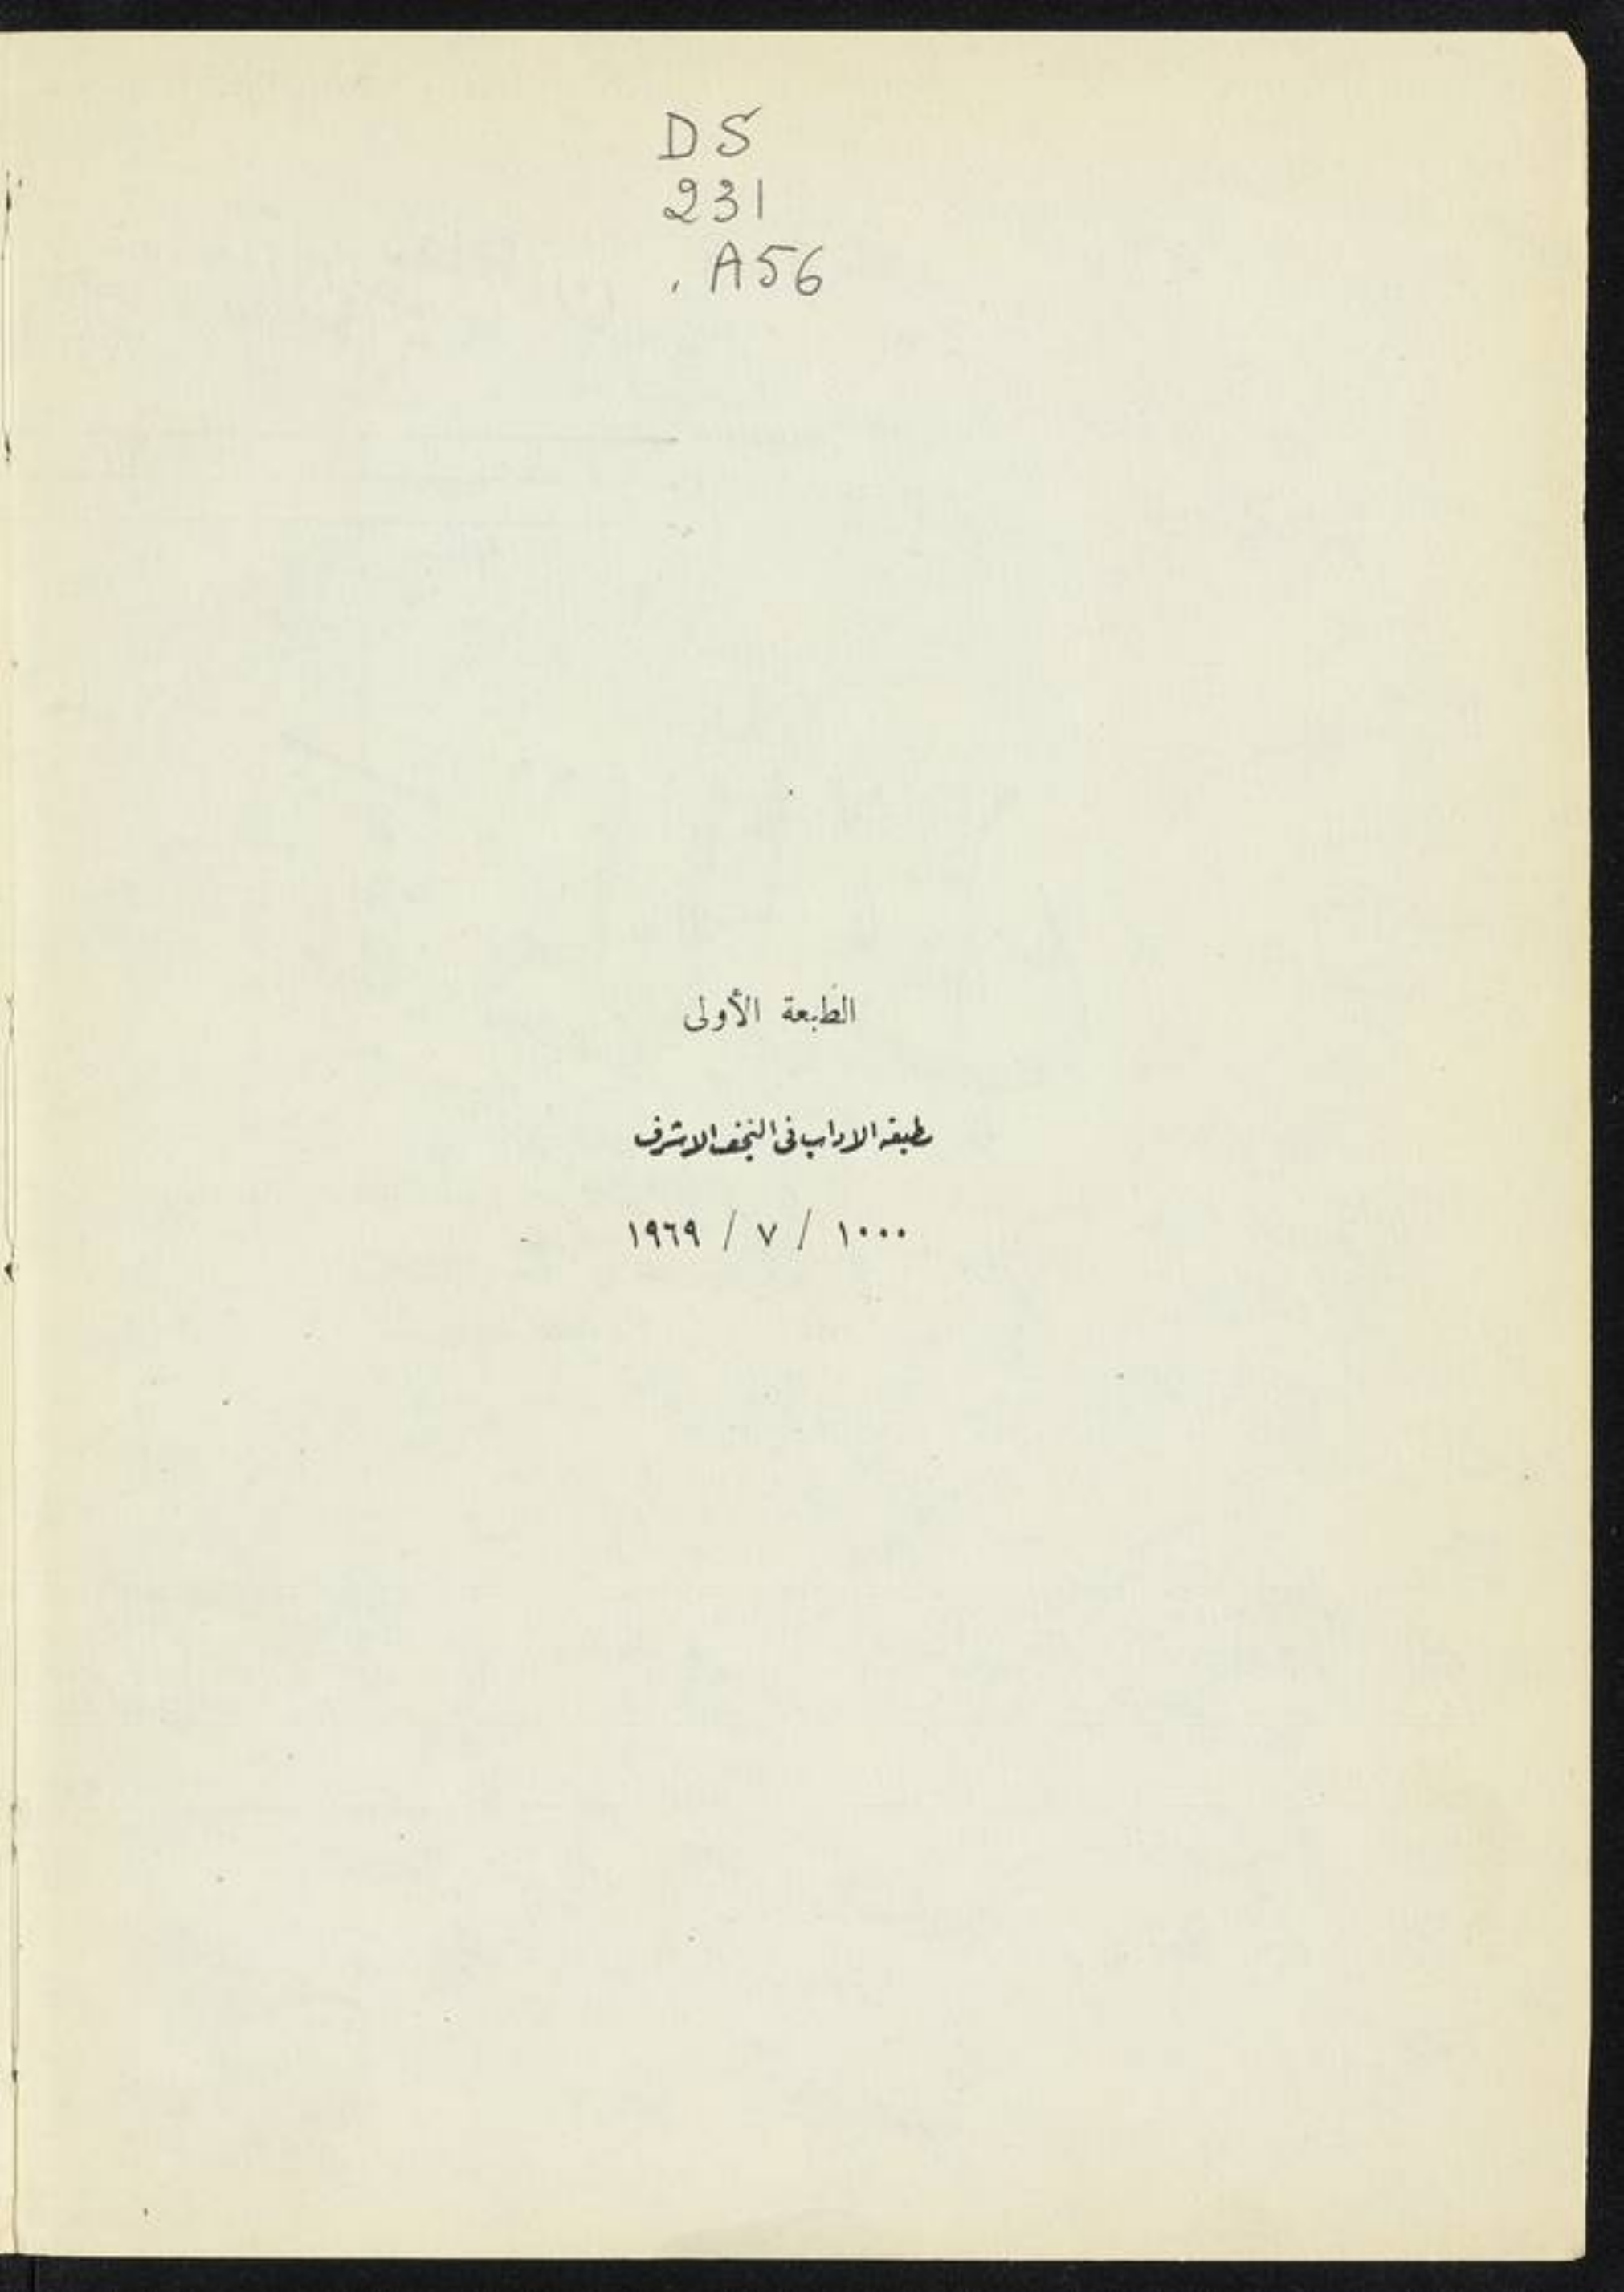 DS
231
.A56
الطبعة الأولى
مطبعة الاداب في النجف الاشرف
١٩٦٩ / ٧ / ١٠٠٠